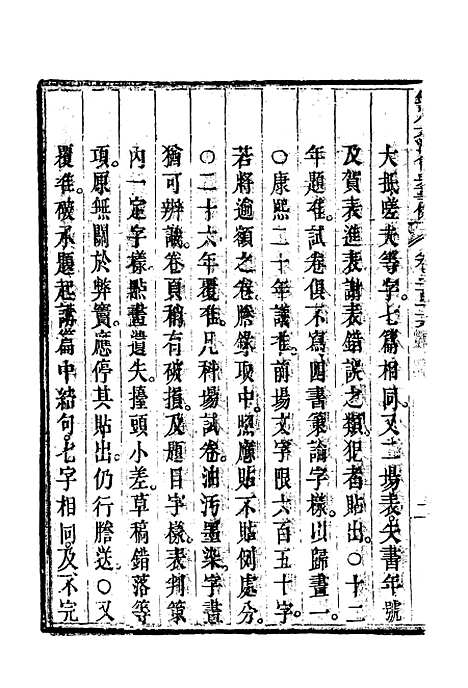 大抵嗟夫等字七篇相同又二場表失書年號
及賀表進表謝表錯誤之類犯者貼出○十二
年題准試卷俱不寫四書策論字樣以歸畫一
○康熙二十年議准前場文字限六百五十字
若將逾額之卷謄錄取中照應貼不貼例處分
○二十六年覆准凡科場試卷油汚墨染字畫
猶可辨識卷頁稍有破損及題目字樣表判策
內一定字樣點畫遺失擡頭小差草稿錯落等
項原無關於弊竇應停其貼出仍行謄送○又
覆准破承題起講篇中結句七字相同及不完